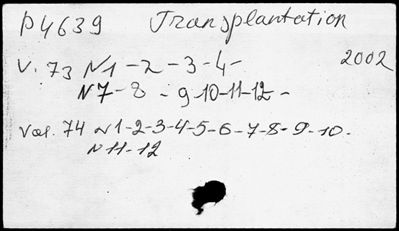 P4639 Transplantation
V. 73 N1-2-3-4- 2002
N7-8-9-10-11-12-
Vol. 74 N1-2-3-4-5-6-7-8-9-10-
N11-12